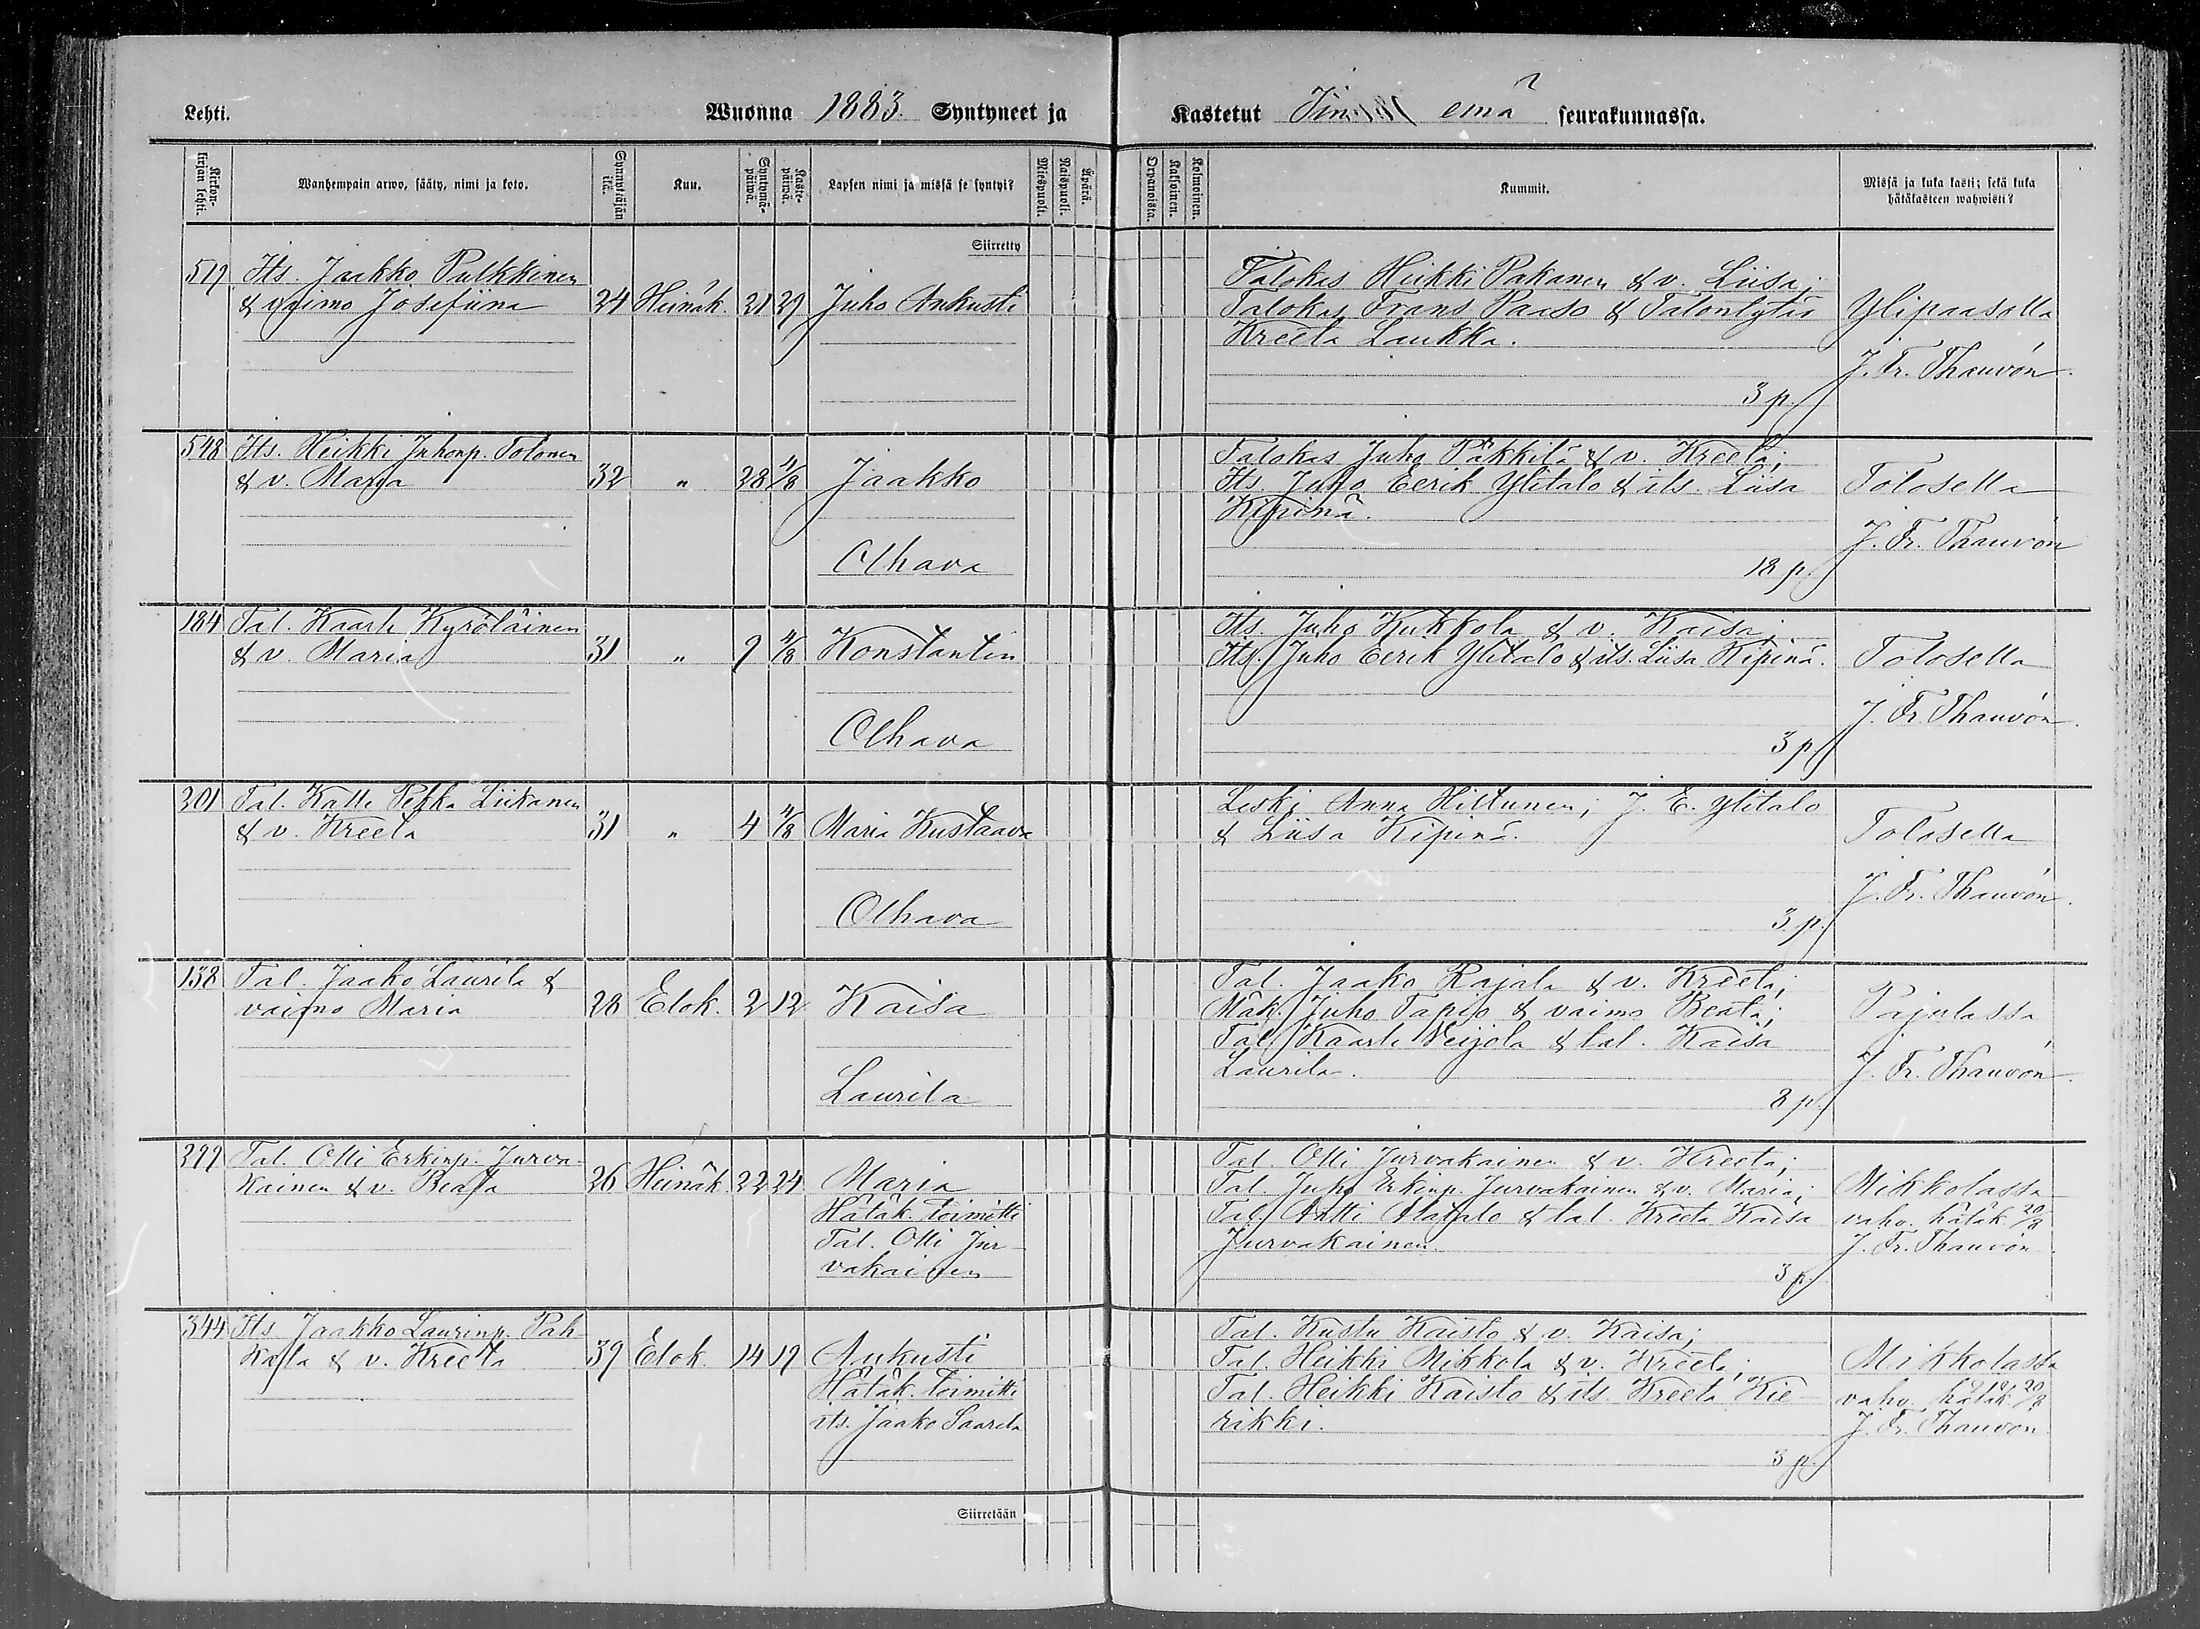 Lehti.
Wuonna 1883. Syntyneet ja
Kastetut emä seurakunnassa.
Kirkonkirjan lehti.
Wanhempain arwo, sääty, nimi ja koto.
Synnyttäjän ikä.
Kuu.
Syntymäpäiwä.
Kastepäiwä.
Lapsen nimi ja missä se syntyi?
Miespuoli.
Naispuoli.
Äpärä.
Orpanoista.
Kaksoinen.
Kolmoinen.
Kummit.
Missä ja kuka kasti; sekä kuka
hätäkasteen wahwisti?
Siirretty
519 Its. Jaakko Pulkkinen
& vaimo Josefiina 24 Heinäk. 21 29 Juho Aukusti
Talokas Heikki Pakanen & v. Liisa;
Talokas Frans Paaso & Talontytär
Kreeta Laukka.
3 p.
Ylipaasolla
J. Fr. Thauvón.
548 Its. Heikki Juhonp. Tolonen
& v. Maria 32 " 28 4/8 Jaakko
Olhava
Talokas Juho Päkkilä & v. Kreeta;
Its. Juho Eerik Ylitalo & its. Liisa
Kipinä.
18 p.
Tolosella
J. Fr. Thauvón
184 Tal. Kaarle Kyröläinen
& v. Maria 31 " 9 4/8 Konstantin
Olhava
Its. Juho Kukkola & v. Kaisa;
Its. Juho Eerik Ylitalo & its. Liisa Kipinä.
3 p.
Tolosella
J. Fr. Thauvón.
201 Tal. Kalle Pekka Liikanen
& v. Kreeta 31 " 4 4/8 Maria Kustaava
Olhava
Leski Anna Hiltunen; J. E. Ylitalo
& Liisa Kipinä.
3 p.
Tolosella
J. Fr. Thauvón.
138 Tal. Jaako Laurila &
vaimo Maria 28 Elok. 2 12 Kaisa
Laurila
Tal. Jaako Rajala & v. Kreeta;
Mäk. Juho Tapio & vaimo Beata;
Tal. Kaarle Veijola & tal. Kaisa
Laurila.
8 p.
Pajulassa
J. Fr. Thauvón.
299 Tal. Olli Erkinp. Jurva-
kainen & v. Beata 26 Heinäk. 22 24 Maria
Hätäk. toimitti
Tal. Olli Jur-
vakainen
Tal. Olli Jurvakainen & v. Kreeta;
Tal. Juho Erkinp. Jurvakainen & v. Maria;
Tal. Antti Alatalo & tal. Kreeta Kaisa
Jurvakainen.
3 p.
Mikkolassa
vahv. hätäk. 20/8
J. Fr. Thauvón.
344 Its. Jaakko Laurinp. Pah
kala & v. Kreeta 39 Elok. 14 19 Aukusti
Hätäk. toimitti
its. Jaako Saarela
Tal. Kustu Kaisto & v. Kaisa;
Tal. Heikki Mikkola & v. Kreeta;
Tal. Heikki Kaisto & its. Kreeta Kie
rikki.
3 p.
Mikkolassa
vahv. hätäk. 20/8
J. Fr. Thauvón
Siirretään